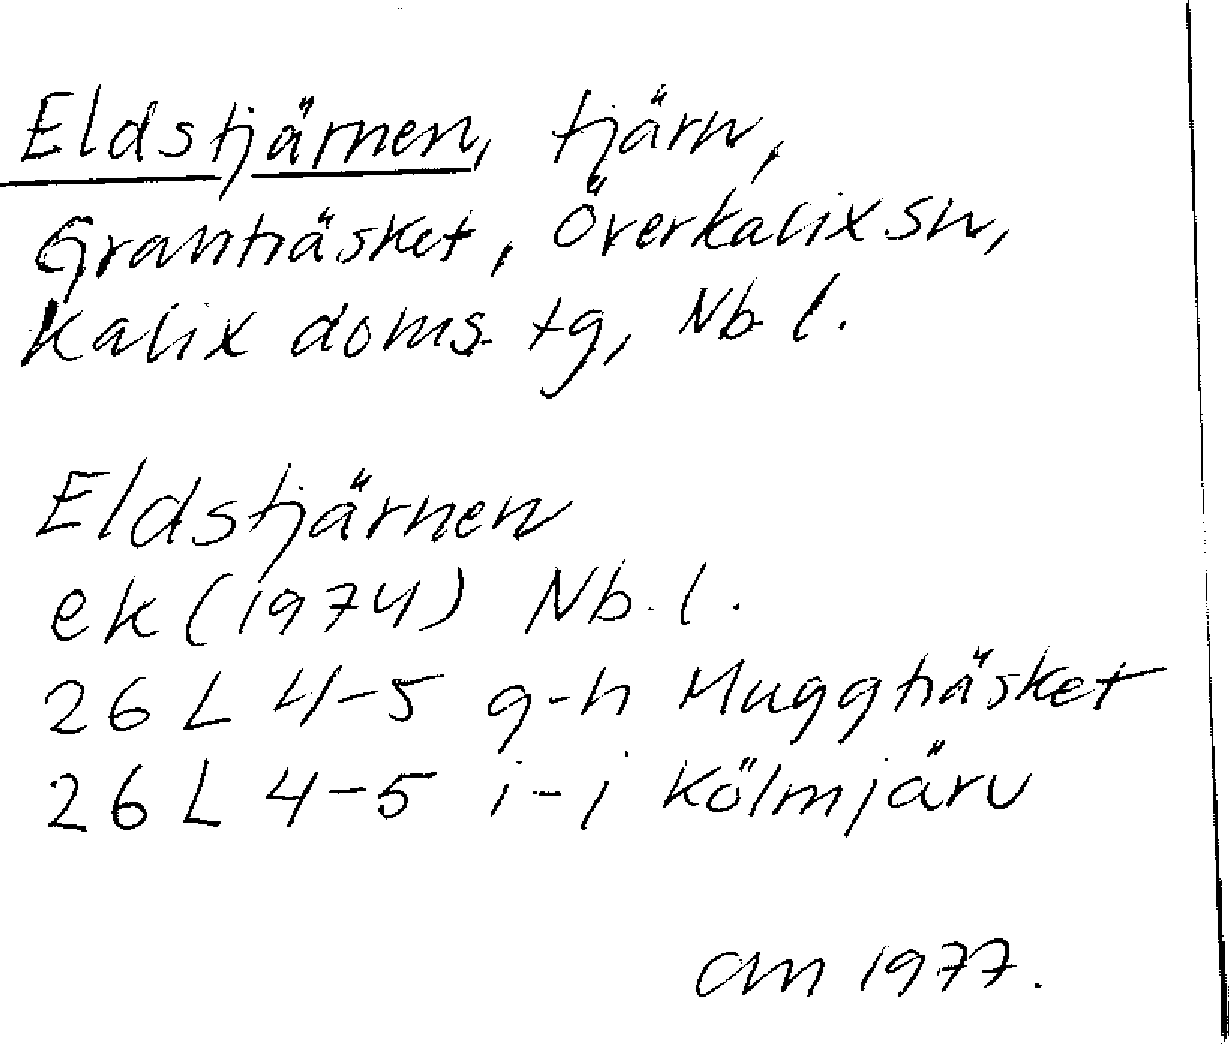 Eldstjärnen, tjärn,
Granträsket, Överkalix sn,
Kalix doms. tg, Nb. l.
Eldstjärnen
ek (1974) Nb. l.
26 L 4-5 g-h Muggträsket
26 L 4-5 i-j Kölmjärv
am 1977.